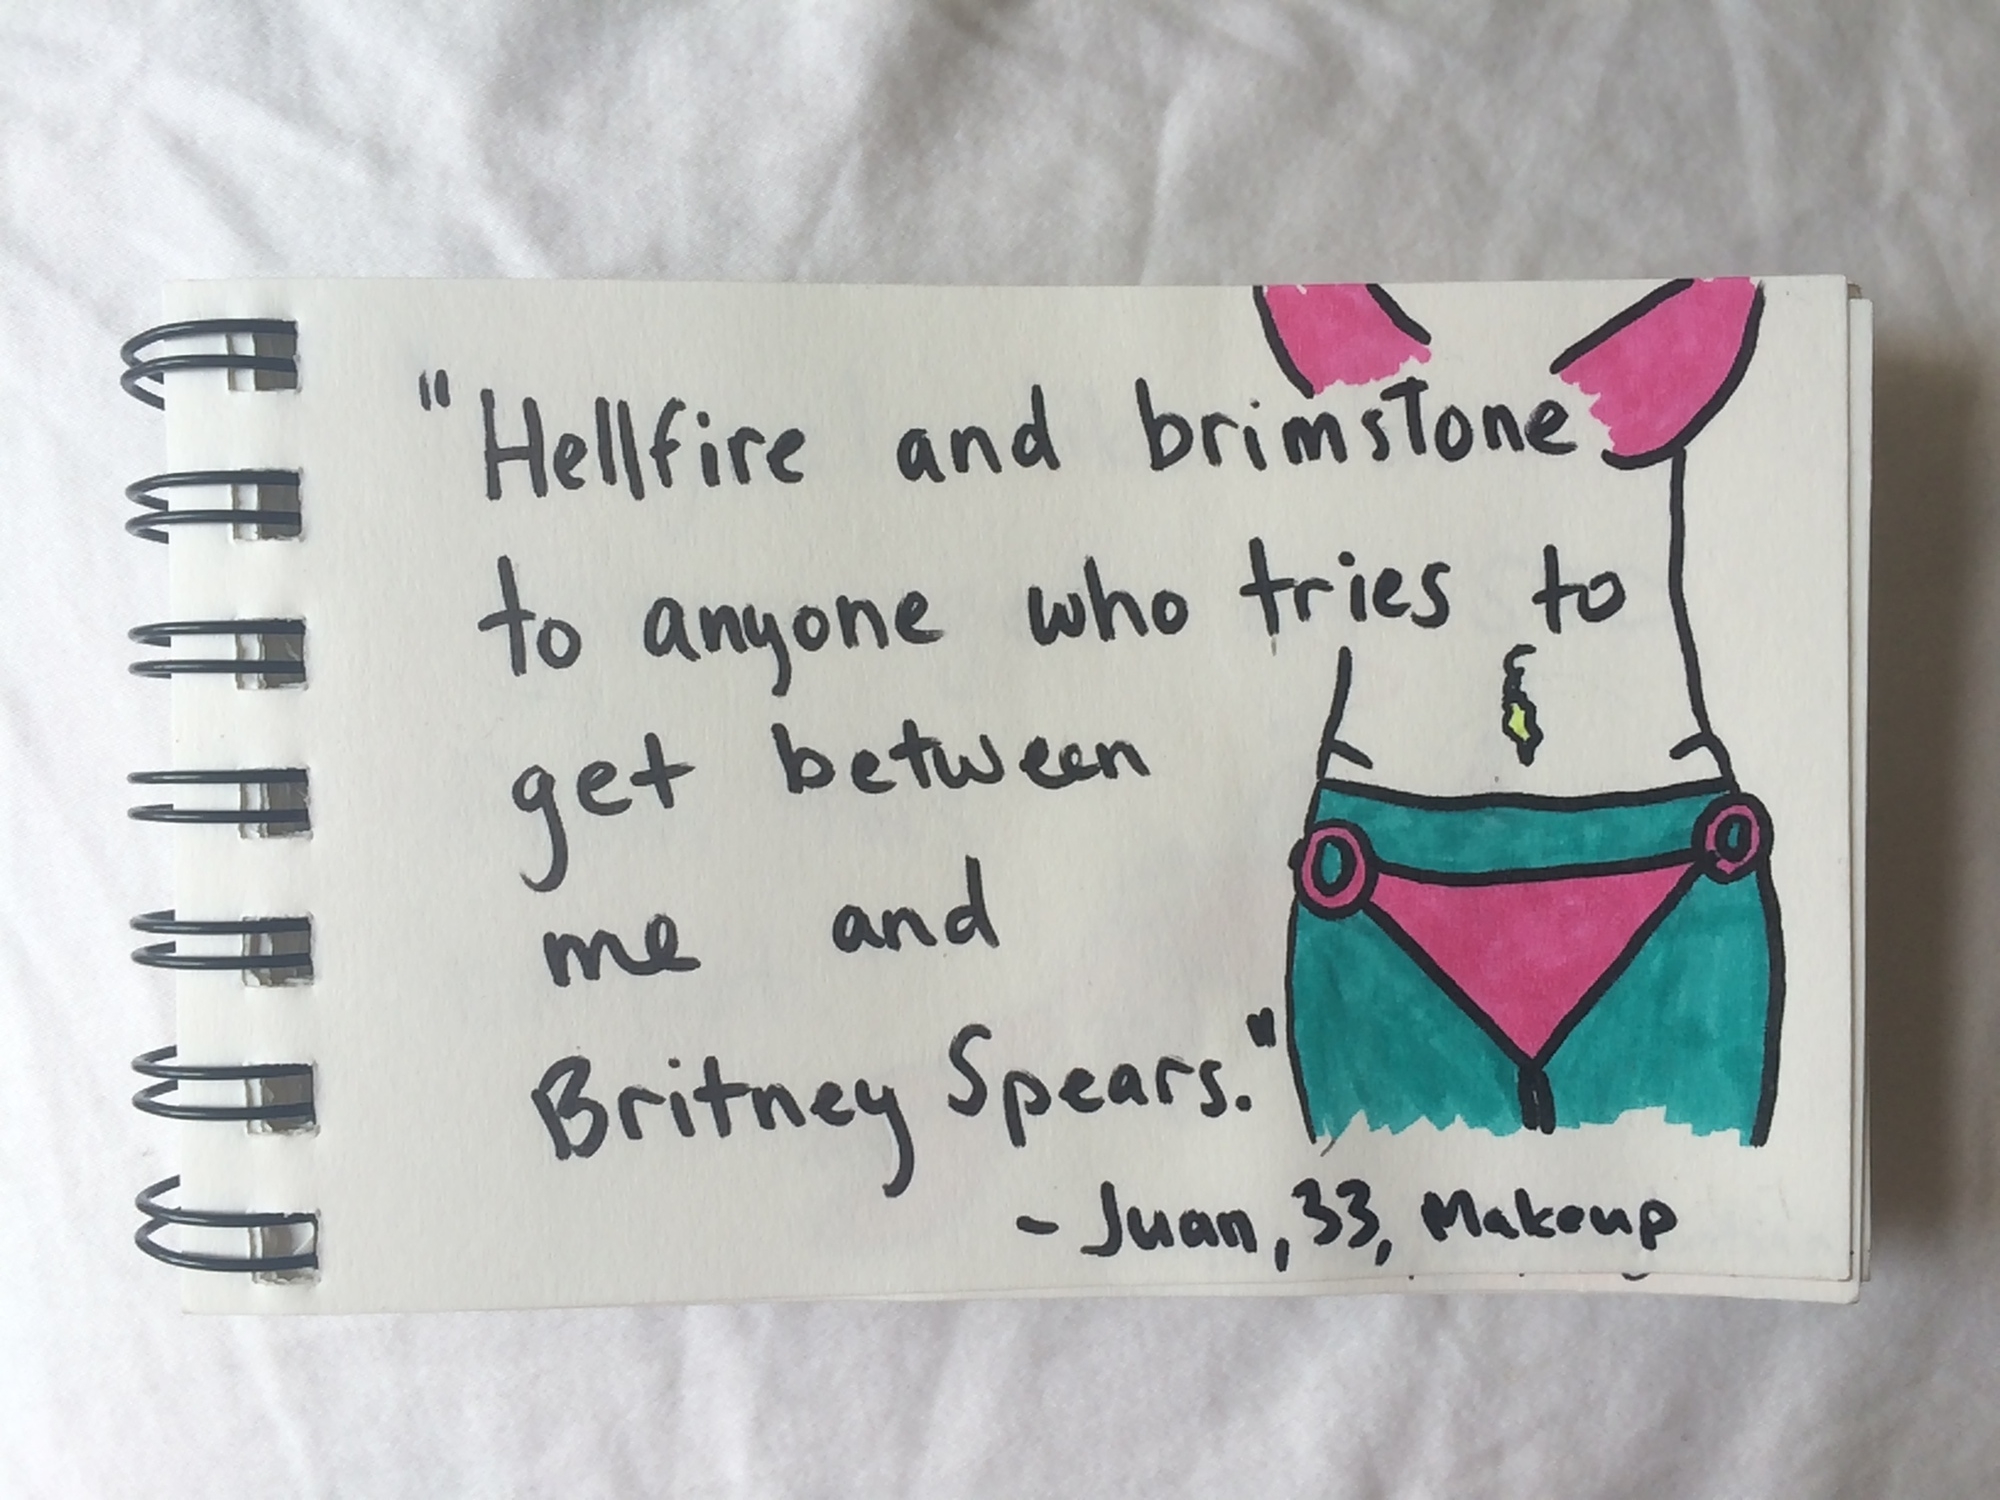 "Hellfire and brimstone
to anyone who tries to
get between
me and
Britney Spears."
- Juan, 33, Makeup